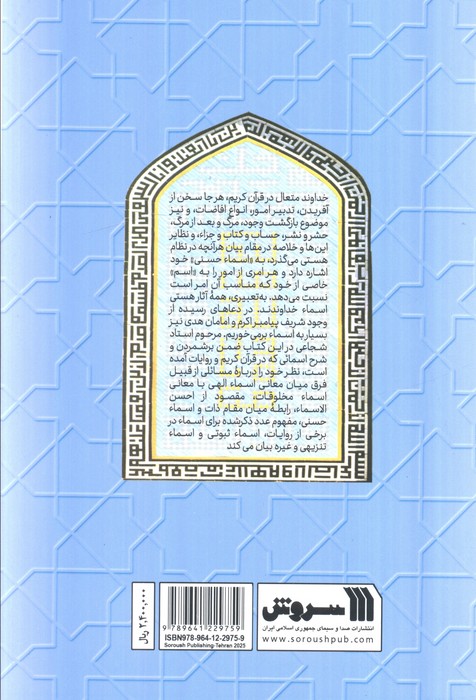 خداوند متعال در قرآن کریم، هرجا سخن از
آفریدن، تدبیر امور، انواع افاضات، و نیز
موضوع بازگشت وجود، مرگ و بعد از مرگ،
حشر و نشر، حساب و کتاب و جزاء، و نظایر
این‌ها و خلاصه در مقام بیان هرآنچه در نظام
هستی می‌گذرد، به «اسماء حسنی» خود
اشاره دارد و هر امری از امور را به «اسم»
خاصی از خود که مناسب آن امر است
نسبت می‌دهد. به‌تعبیری، همهٔ آثار هستی
اسماء خداوندند. در دعاهای رسیده از
وجود شریف پیامبر اکرم و امامان هدی نیز
بسیار به اسماء برمی‌خوریم. مرحوم استاد
شجاعی در این کتاب ضمن برشمردن و
شرح اسمائی که در قرآن کریم و روایات آمده
است، نظر خود را دربارهٔ مسائلی از قبیل
فرق میان معانی اسماء الهی با معانی
اسماء مخلوقات، مقصود از احسن
الاسماء، رابطهٔ میان مقام ذات و اسماء
حسنی، مفهوم عدد ذکرشده برای اسماء در
برخی از روایات، اسماء ثبوتی و اسماء
تنزیهی و غیره بیان می کند
سروش
انتشارات صدا و سیمای جمهوری اسلامی ایران
www.soroushpub.com
9 789641 229759
ISBN978-964-12-2975-9
Soroush Publishing-Tehran 2025
۲,۴۰۰,۰۰۰ ریال